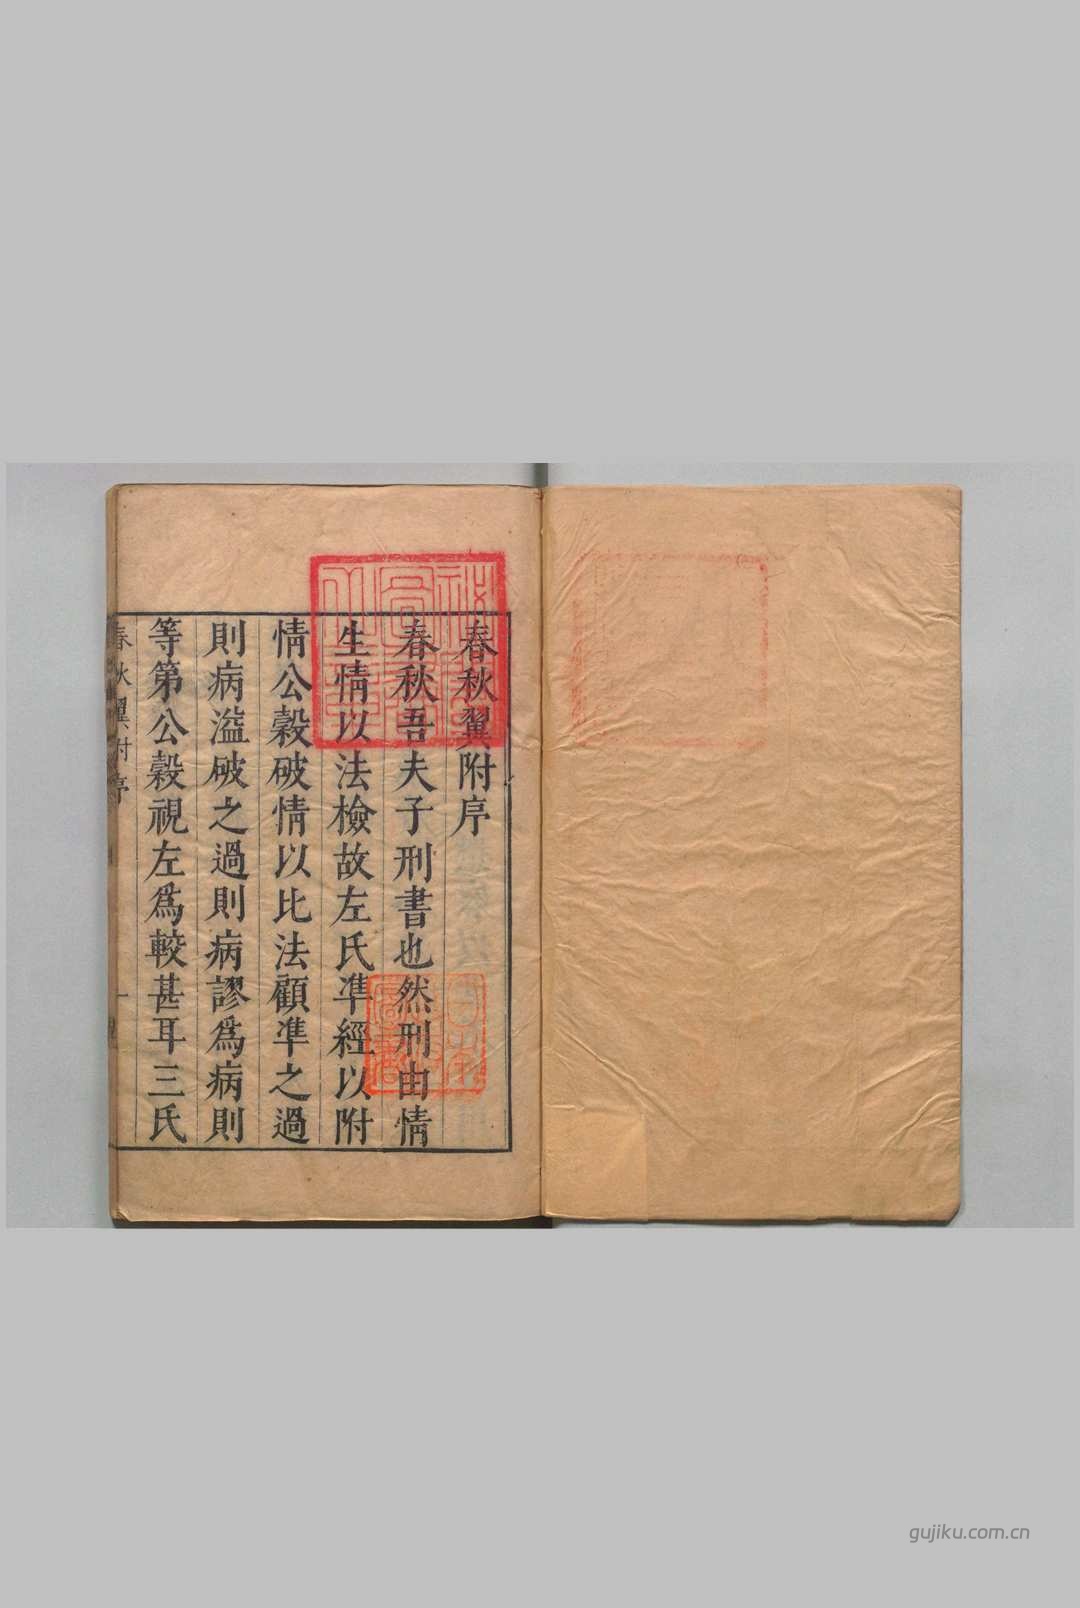 春秋翼附序
春秋吾夫子刑書也然刑由情
生情以法檢故左氏準經以附
情公穀破情以比法顧準之過
則病溢破之過則病謬爲病則
等第公穀視左爲較甚耳三氏
春秋翼附序
一
gujiku.com.cn